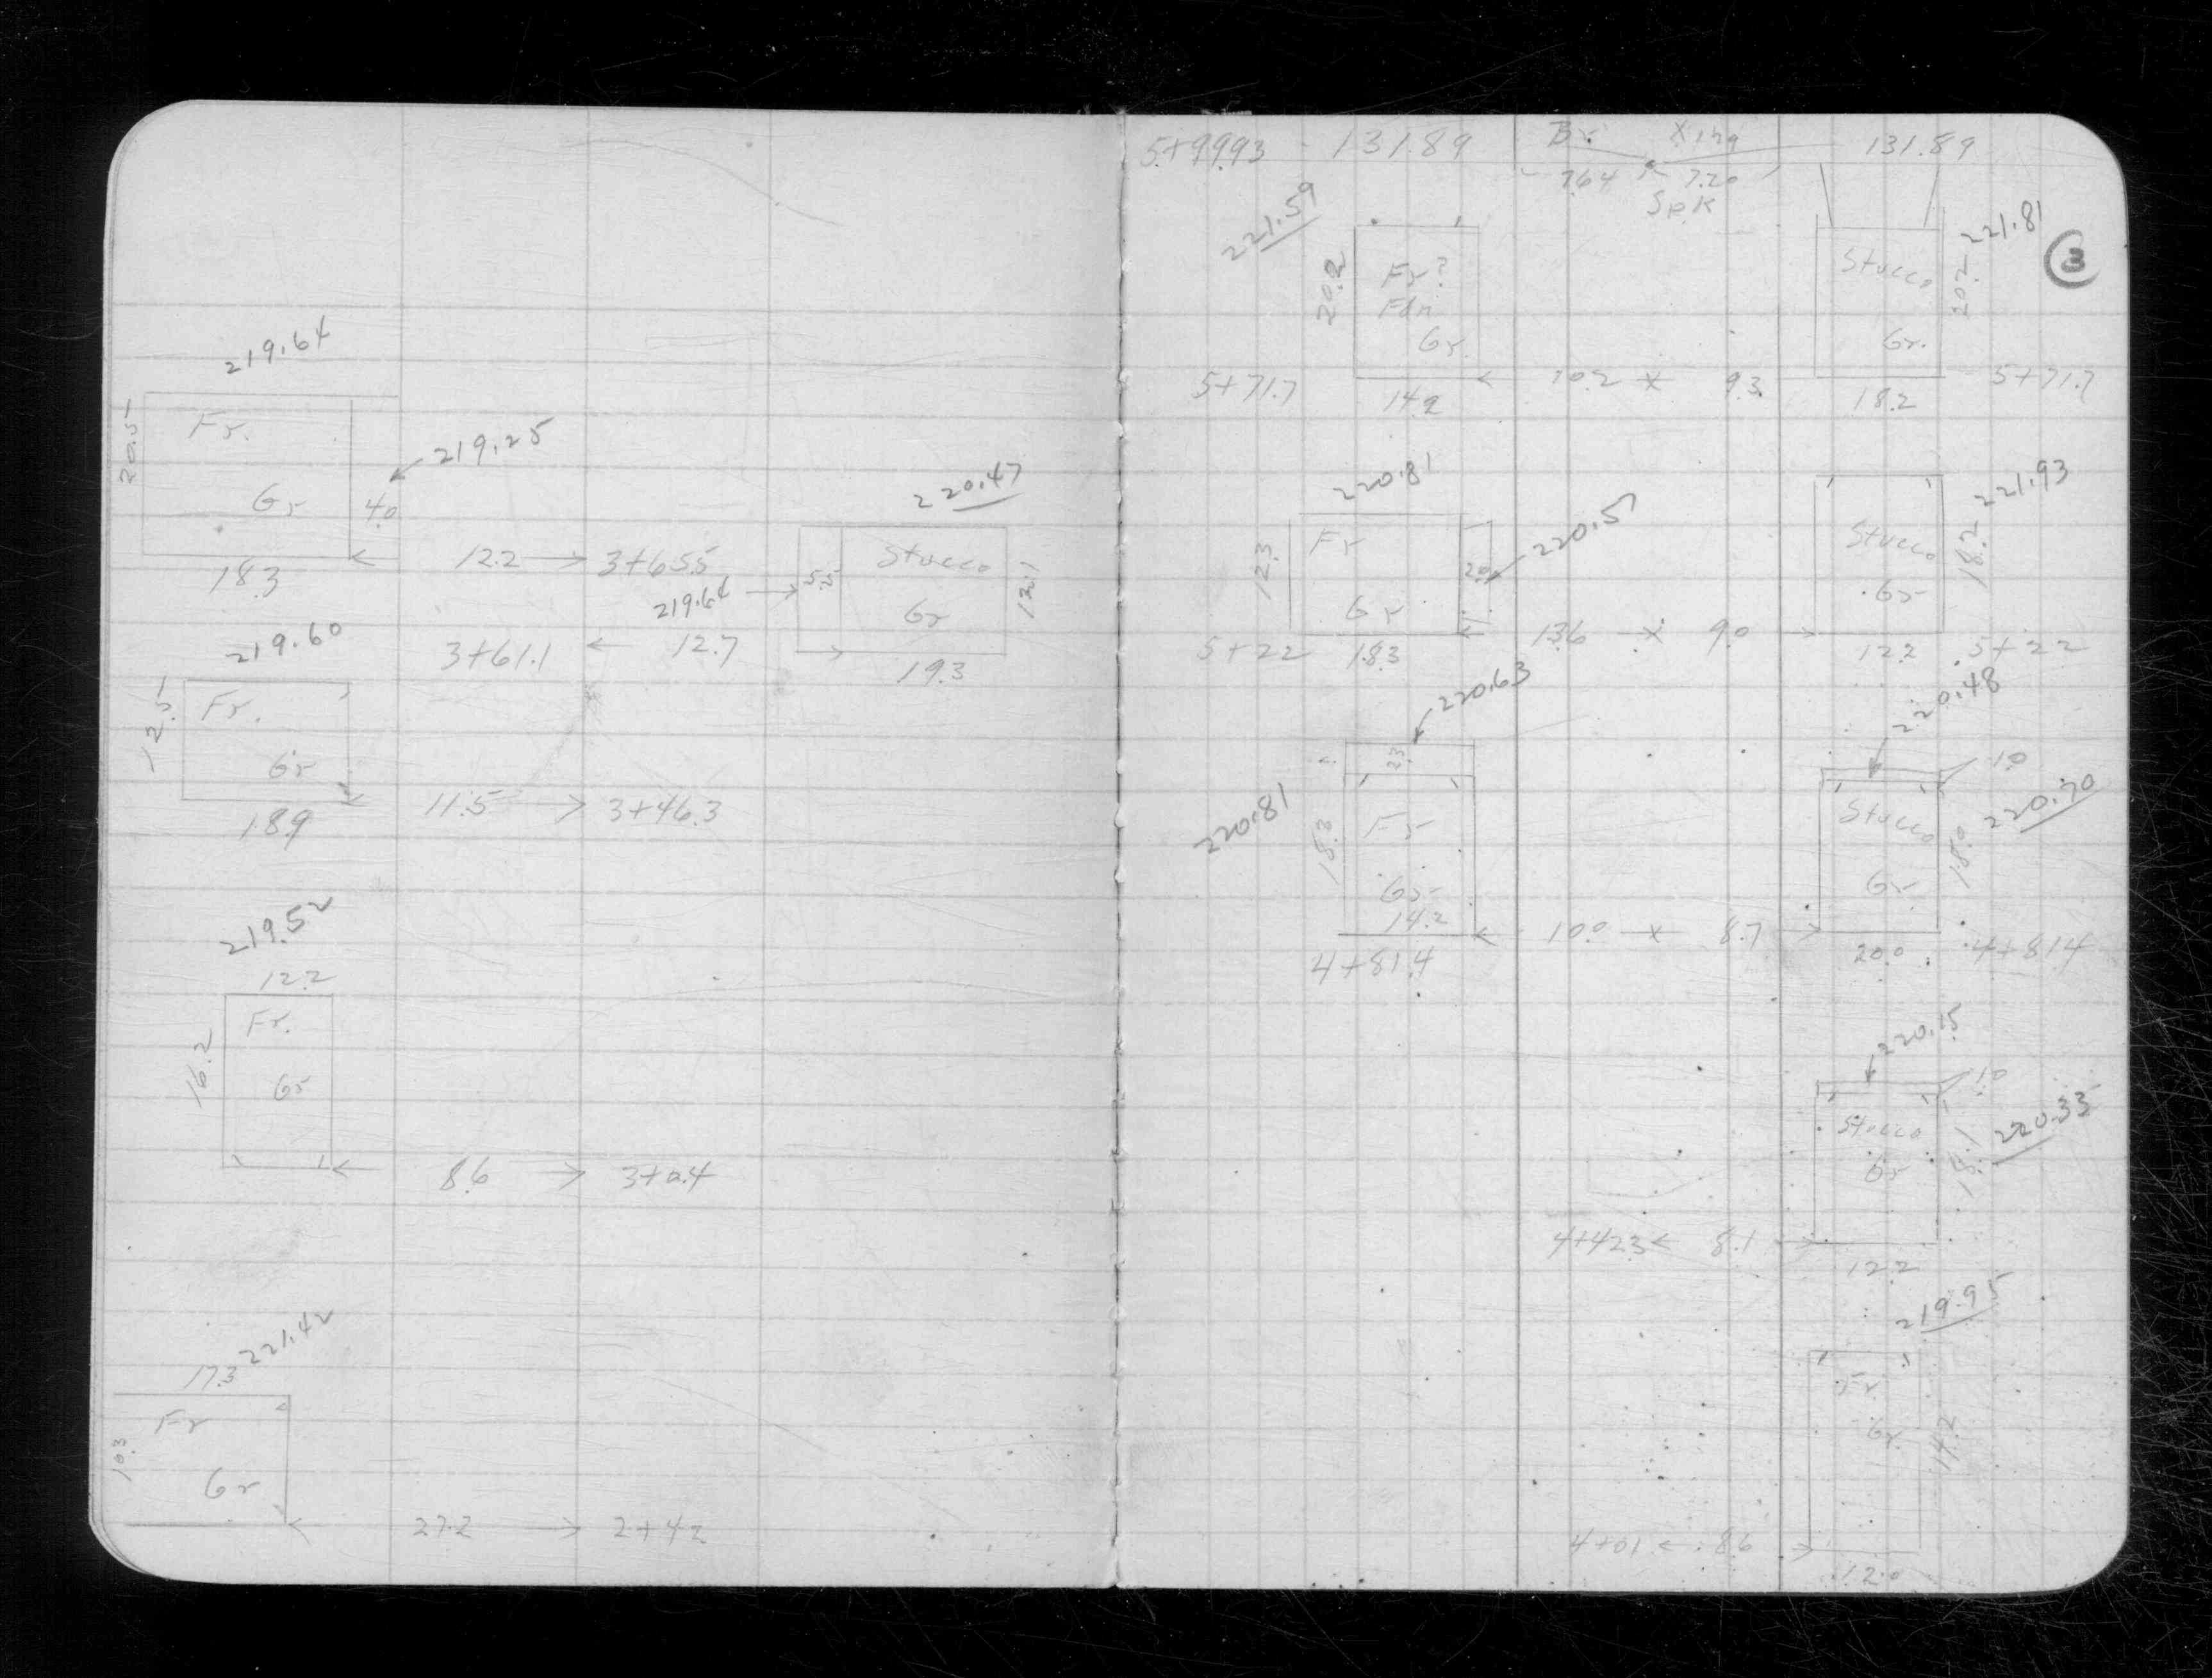 219.64
20.5
Fr.
Gr
4.0
219.25
18.3
12.2
3+65.5
220.47
5.5
Stucco
Gr
12.1
219.64
3+61.1
12.7
19.3
219.60
12.5
Fr.
Gr
18.9
11.5
3+46.3
219.52
12.2
16.2
Fr.
Gr
8.6
3+0.4
221.42
17.3
10.3
Fr
Gr
27.2
2+42
5+99.93
131.89
Br.
131.89
7.64
7.20
Spk
3
221.59
20.2
Fr?
Fdn
Gr.
221.81
Stucco
20.2
Gr.
5+71.7
14.2
10.2 x 9.3
18.2
5+71.7
220.81
12.3
Fr
Gr
2.0
220.51
221.93
Stucco
Gr
18.2
5+22
18.3
13.6 x 9.0
12.2
5+22
220.63
2.3
220.81
18.3
Fr
Gr
14.2
4+81.4
10.0 x 8.7
220.48
1.0
220.70
Stucco
Gr
18.0
20.0
4+81.4
220.15
1.0
220.33
Stucco
Gr
4+42.3
8.1
12.2
219.95
Fr
Gr
14.2
4+01
8.6
12.0